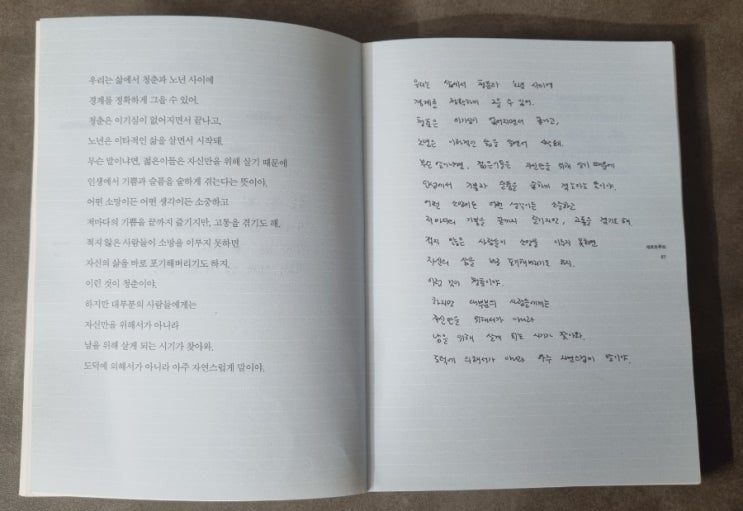 우리는 삶에서 청춘과 노년 사이에
경계를 정확하게 그을 수 있어.
청춘은 이기심이 없어지면서 끝나고,
노년은 이타적인 삶을 살면서 시작돼.
무슨 말이냐면, 젊은이들은 자신만을 위해 살기 때문에
인생에서 기쁨과 슬픔을 숱하게 겪는다는 뜻이야.
어떤 소망이든 어떤 생각이든 소중하고
저마다의 기쁨을 끝까지 즐기지만, 고통을 겪기도 해.
적지 않은 사람들이 소망을 이루지 못하면
자신의 삶을 바로 포기해버리기도 하지.
이런 것이 청춘이야.
하지만 대부분의 사람들에게는
자신만을 위해서가 아니라
남을 위해 살게 되는 시기가 찾아와.
도덕에 의해서가 아니라 아주 자연스럽게 말이야.
우리는 삶에서 청춘과 노년 사이에
경계를 정확하게 그을 수 있어.
청춘은 이기심이 없어지면서 끝나고,
노년은 이타적인 삶을 살면서 시작돼.
무슨 말이냐면, 젊은이들은 자신만을 위해 살기 때문에
인생에서 기쁨과 슬픔을 숱하게 겪는다는 뜻이야.
어떤 소망이든 어떤 생각이든 소중하고
저마다의 기쁨을 끝까지 즐기지만, 고통을 겪기도 해.
적지 않은 사람들이 소망을 이루지 못하면
자신의 삶을 바로 포기해버리기도 하지.
이런 것이 청춘이야.
하지만 대부분의 사람들에게는
자신만을 위해서가 아니라
남을 위해 살게 되는 시기가 찾아와.
도덕에 의해서가 아니라 아주 자연스럽게 말이야.
67